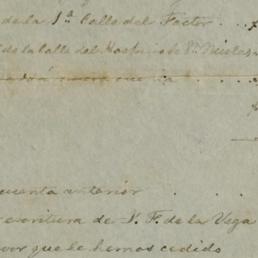 de la 1ª Calle del Factor
de la Calle del Hospicio de Sn. Nicolas
cuenta anterior
escritura de J. F. de la Vega
por que le hemos cedido